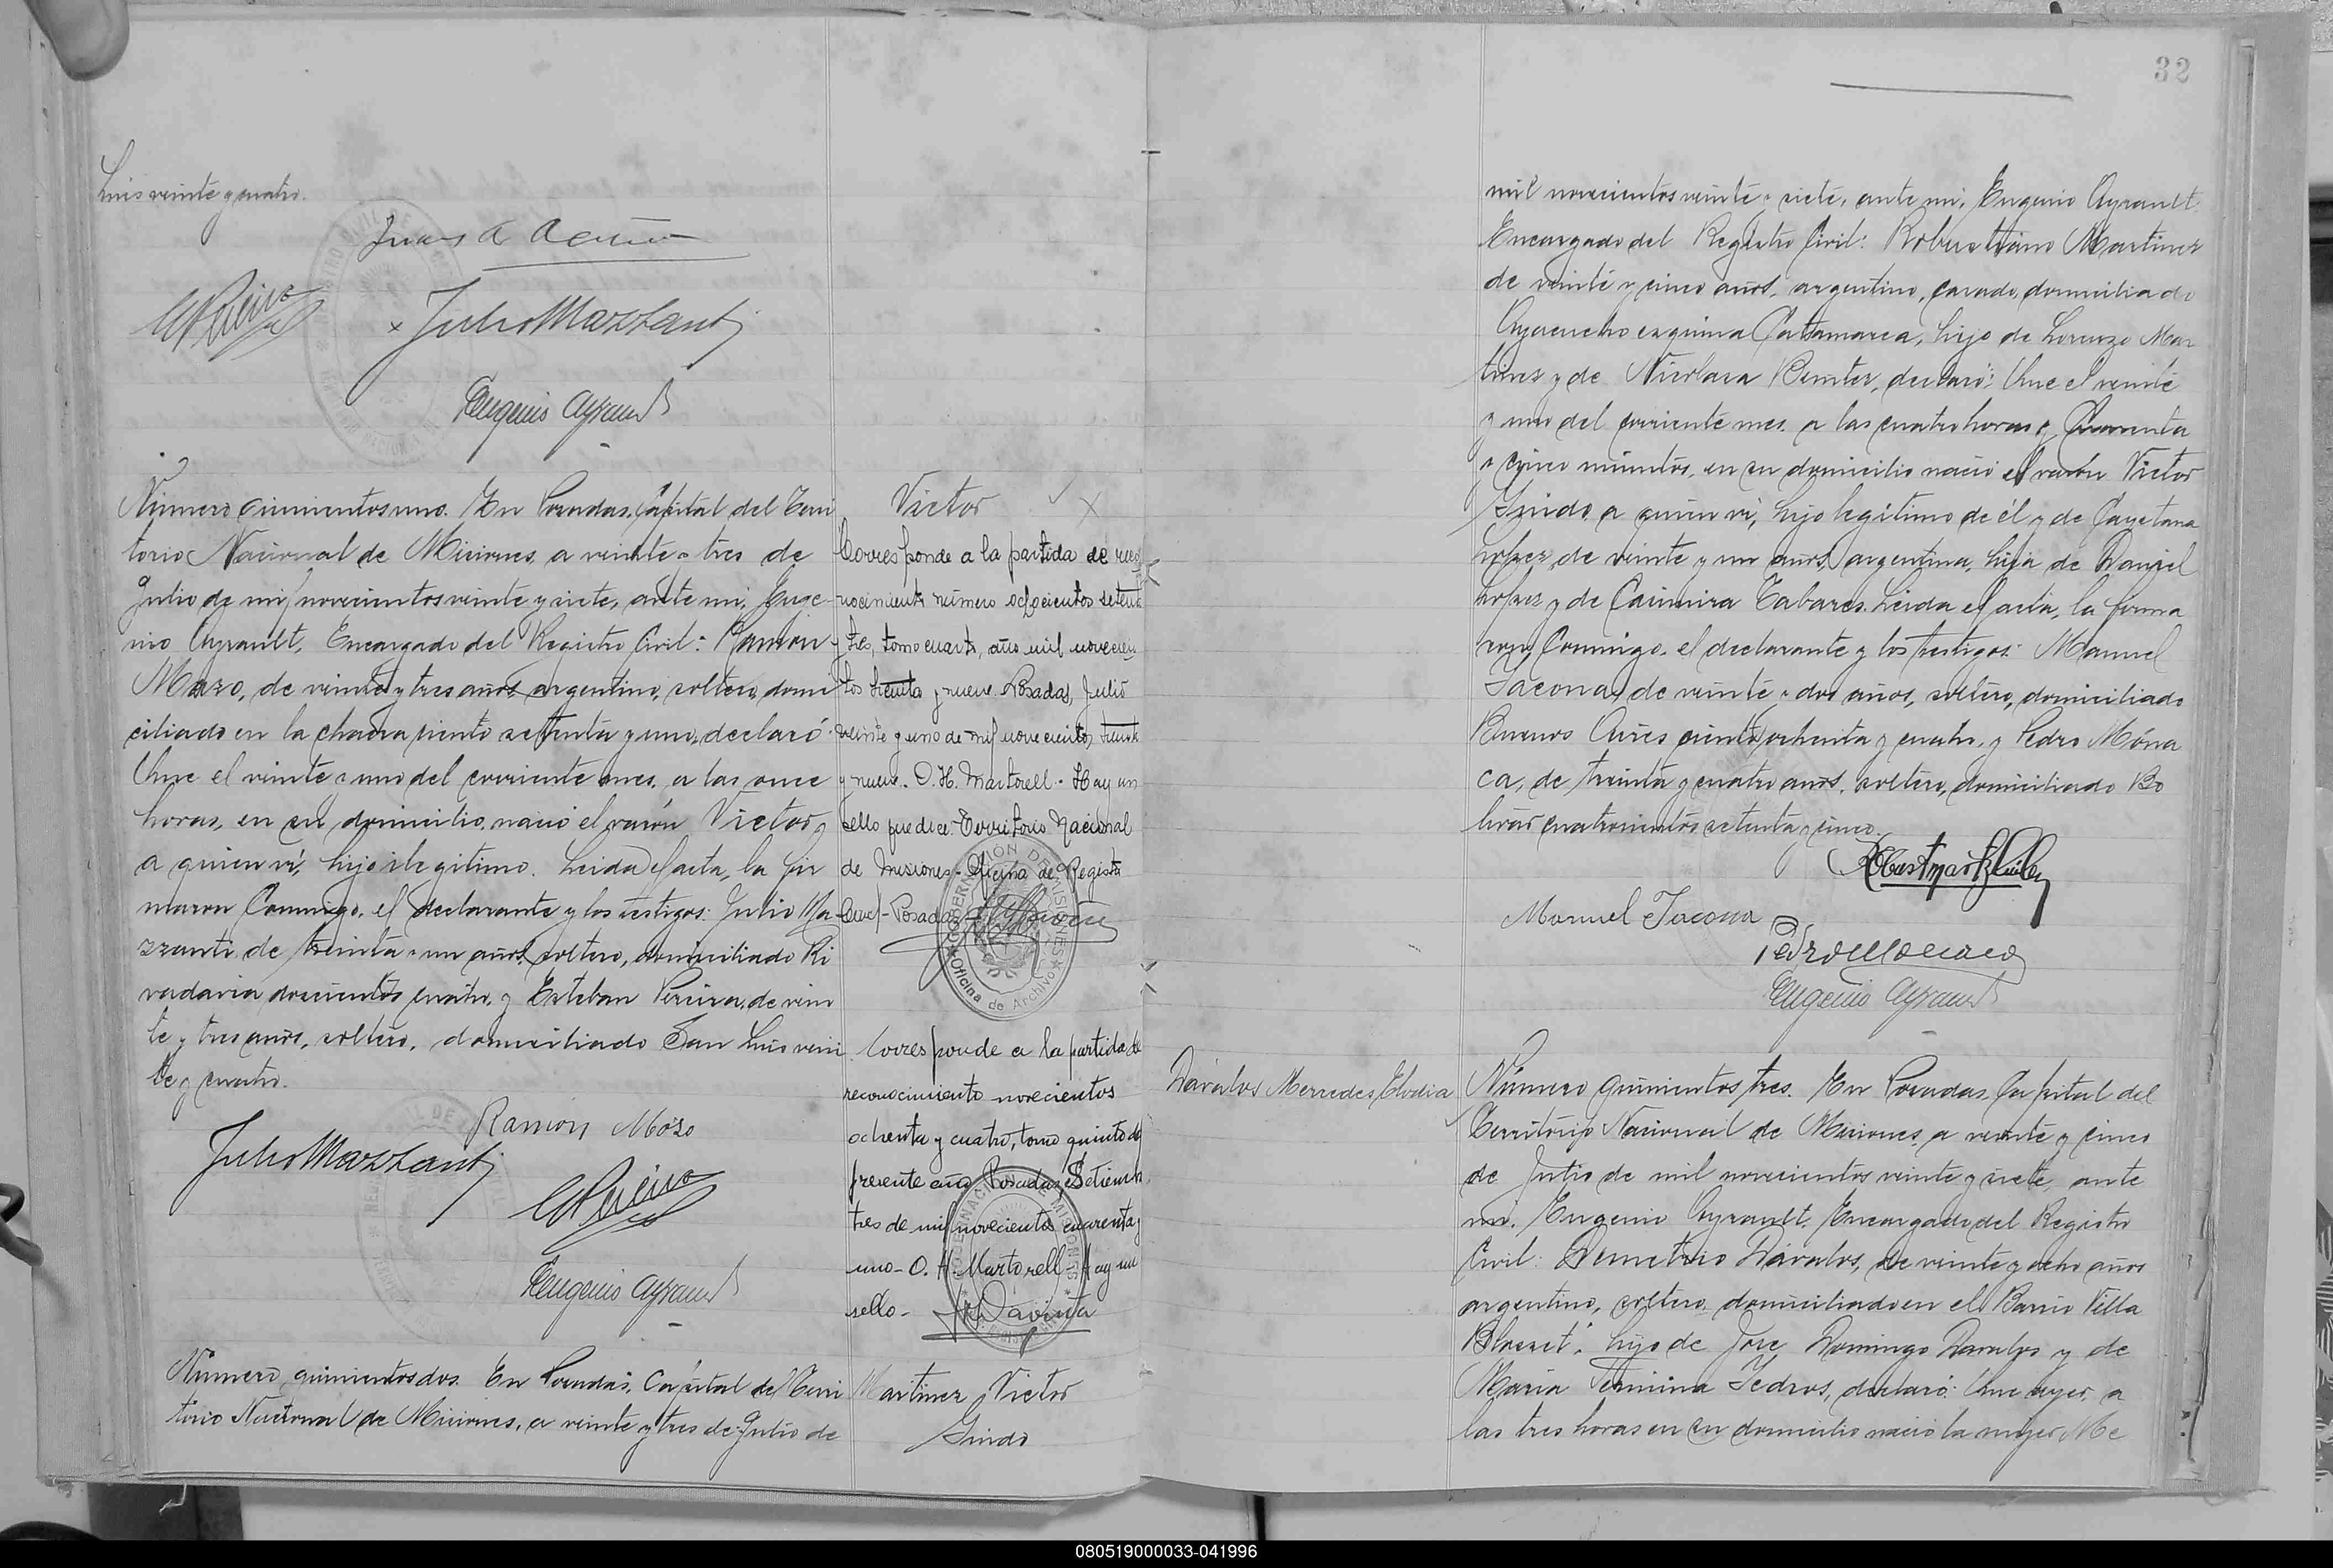 Luis veinte y cuatro.
Juan A Acuña
Julio Mazzanti
Eugenio Ayrault
Número quinientos uno. En Posadas, Capital del Terri
torio Nacional de Misiones, a veinte y tres de
Julio de mil novecientos veinte y siete, ante mi, Euge
nio Ayrault, Encargado del Registro Civil: Ramón
Mozo, de veinte y tres años, argentino, soltero, domi
ciliado en la chacra ciento setenta y uno, declaró:
Que el veinte y uno del corriente mes, a las once
horas, en su domicilio, nació el varón Victor,
a quien ví, hijo ilegítimo. Leida el acta, la fir
maron Conmigo, el declarante y los testigos: Julio Ma
zzanti, de treinta y un años, soltero, domiciliado Ri
vadavia doscientos cuatro, y Esteban Pereira, de vein
te y tres años, soltero, domiciliado San Luis vein
te y cuatro.
Ramon Mozo
Julio Mazzanti
Eugenio Ayrault
Número quinientos dos. En Posadas, Capital del Terri
torio Nacional de Misiones, a veinte y tres de Julio de
Victor
Corresponde a la partida de reco
nocimiento número ochocientos setenta
y tres, tomo cuarto, año mil novecien
tos treinta y nueve. Posadas, Julio
veinte y uno de mil novecientos treinta
y nueve. O. H. Martorell - Hay un
sello que dice: Territorio Nacional
de Misiones - Oficina de Registro
Civil - Posadas
GOBERNACIÓN DE MISIONES
Oficina de Archivo
Corresponde a la partida de
reconocimiento novecientos
ochenta y cuatro, tomo quinto del
presente año Posadas Setiembre
tres de mil novecientos cuarenta y
uno - O. H. Martorell - Hay un
sello -
Martinez Victor
Guido
32
mil novecientos veinte y siete, ante mi, Eugenio Ayrault,
Encargado del Registro Civil: Robustiano Martinez
de veinte y cinco años, argentino, casado, domiciliado
Ayacucho esquina Catamarca, hijo de Lorenzo Mar
tinez y de Nicolasa, declaró: Que el veinte
y uno del corriente mes, a las cuatro horas y Cuarenta
y cinco minutos, en su domicilio nació el varón Victor
Guido, a quien ví, hijo legítimo de él y de Cayetana
Lopez, de veinte y un años, argentina, hija de Daniel
Lopez y de Casimira Tabares. Leida el acta, la firma
ron Conmigo, el declarante y los testigos: Manuel
Jacona, de veinte y dos años, soltero, domiciliado
Buenos Aires ciento ochenta y cuatro, y Pedro Móna
ca, de treinta y cuatro años, soltero, domiciliado Bo
livar cuatrocientos setenta y cinco.
Manuel Jacona
Pedro Monaca
Eugenio Ayrault
Dávalos Mercedes Elodia
Número quinientos tres. En Posadas, Capital del
Territorio Nacional de Misiones, a veinte y cinco
de Julio de mil novecientos veinte y siete, ante
mi, Eugenio Ayrault, Encargado del Registro
Civil: Demetrio Dávalos, de veinte y ocho años
argentino, soltero, domiciliado en el Barrio Villa
Blosset, hijo de Jose Domingo Davalos y de
Maria Fermina, declaró: Que ayer, a
las tres horas en su domicilio nació la mujer Me
080519000033-041996